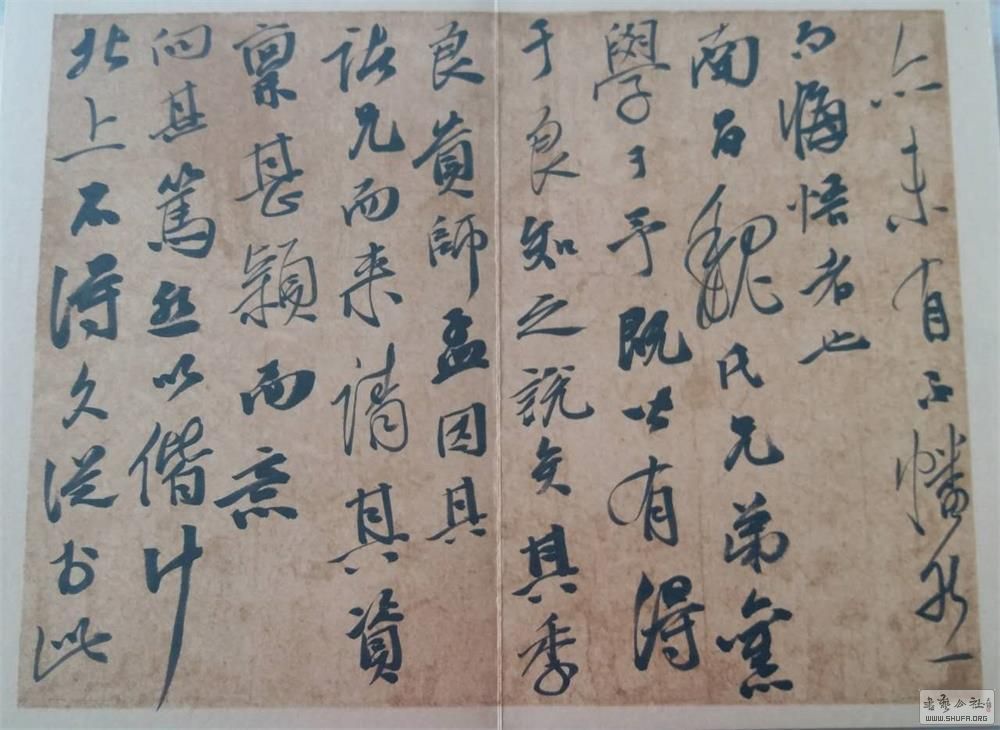 亦未有不幡然一
而悔悟者也
南昌魏氏兄弟業
學于予既皆有得
于良知之說矣其季
良貴師孟因其
諸兄而来請其資
稟甚穎而意
向甚篤然以偕计
北上不得久從於此
書藝公社
WWW.SHUFA.ORG